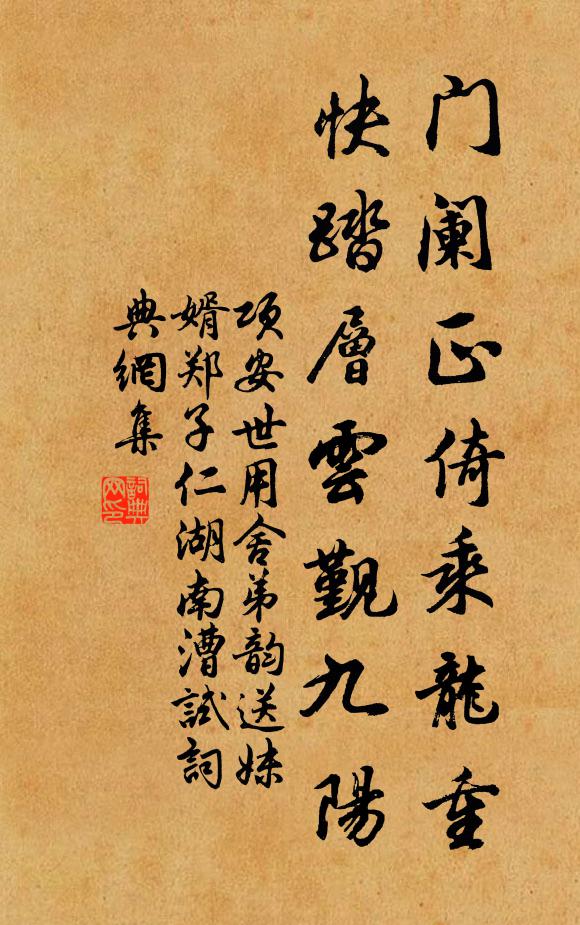 门阑正倚乘龙重
快踏層雲觐九陽
项安世用舍弟韵送妹
婿郑子仁湖南漕試詞
典網集
詞典
网印